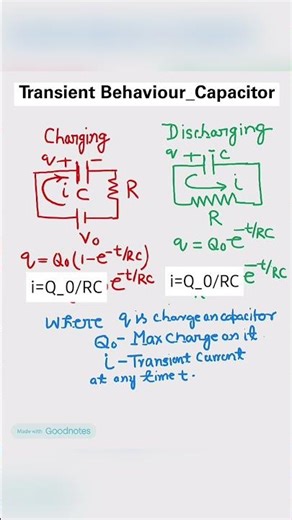 Transient Behaviour_Capacitor
Charging
q + -
i C
R
V0
q = Q0 (1-e^-t/RC)
i=Q_0/RC . e^-t/RC
Discharging
q + - C
i
R
q = Q0 e^-t/RC
i=Q_0/RC e^-t/RC
Where q is charge on capacitor
Q0 - Max charge on it
i - Transient Current
at any time t.
Made with Goodnotes